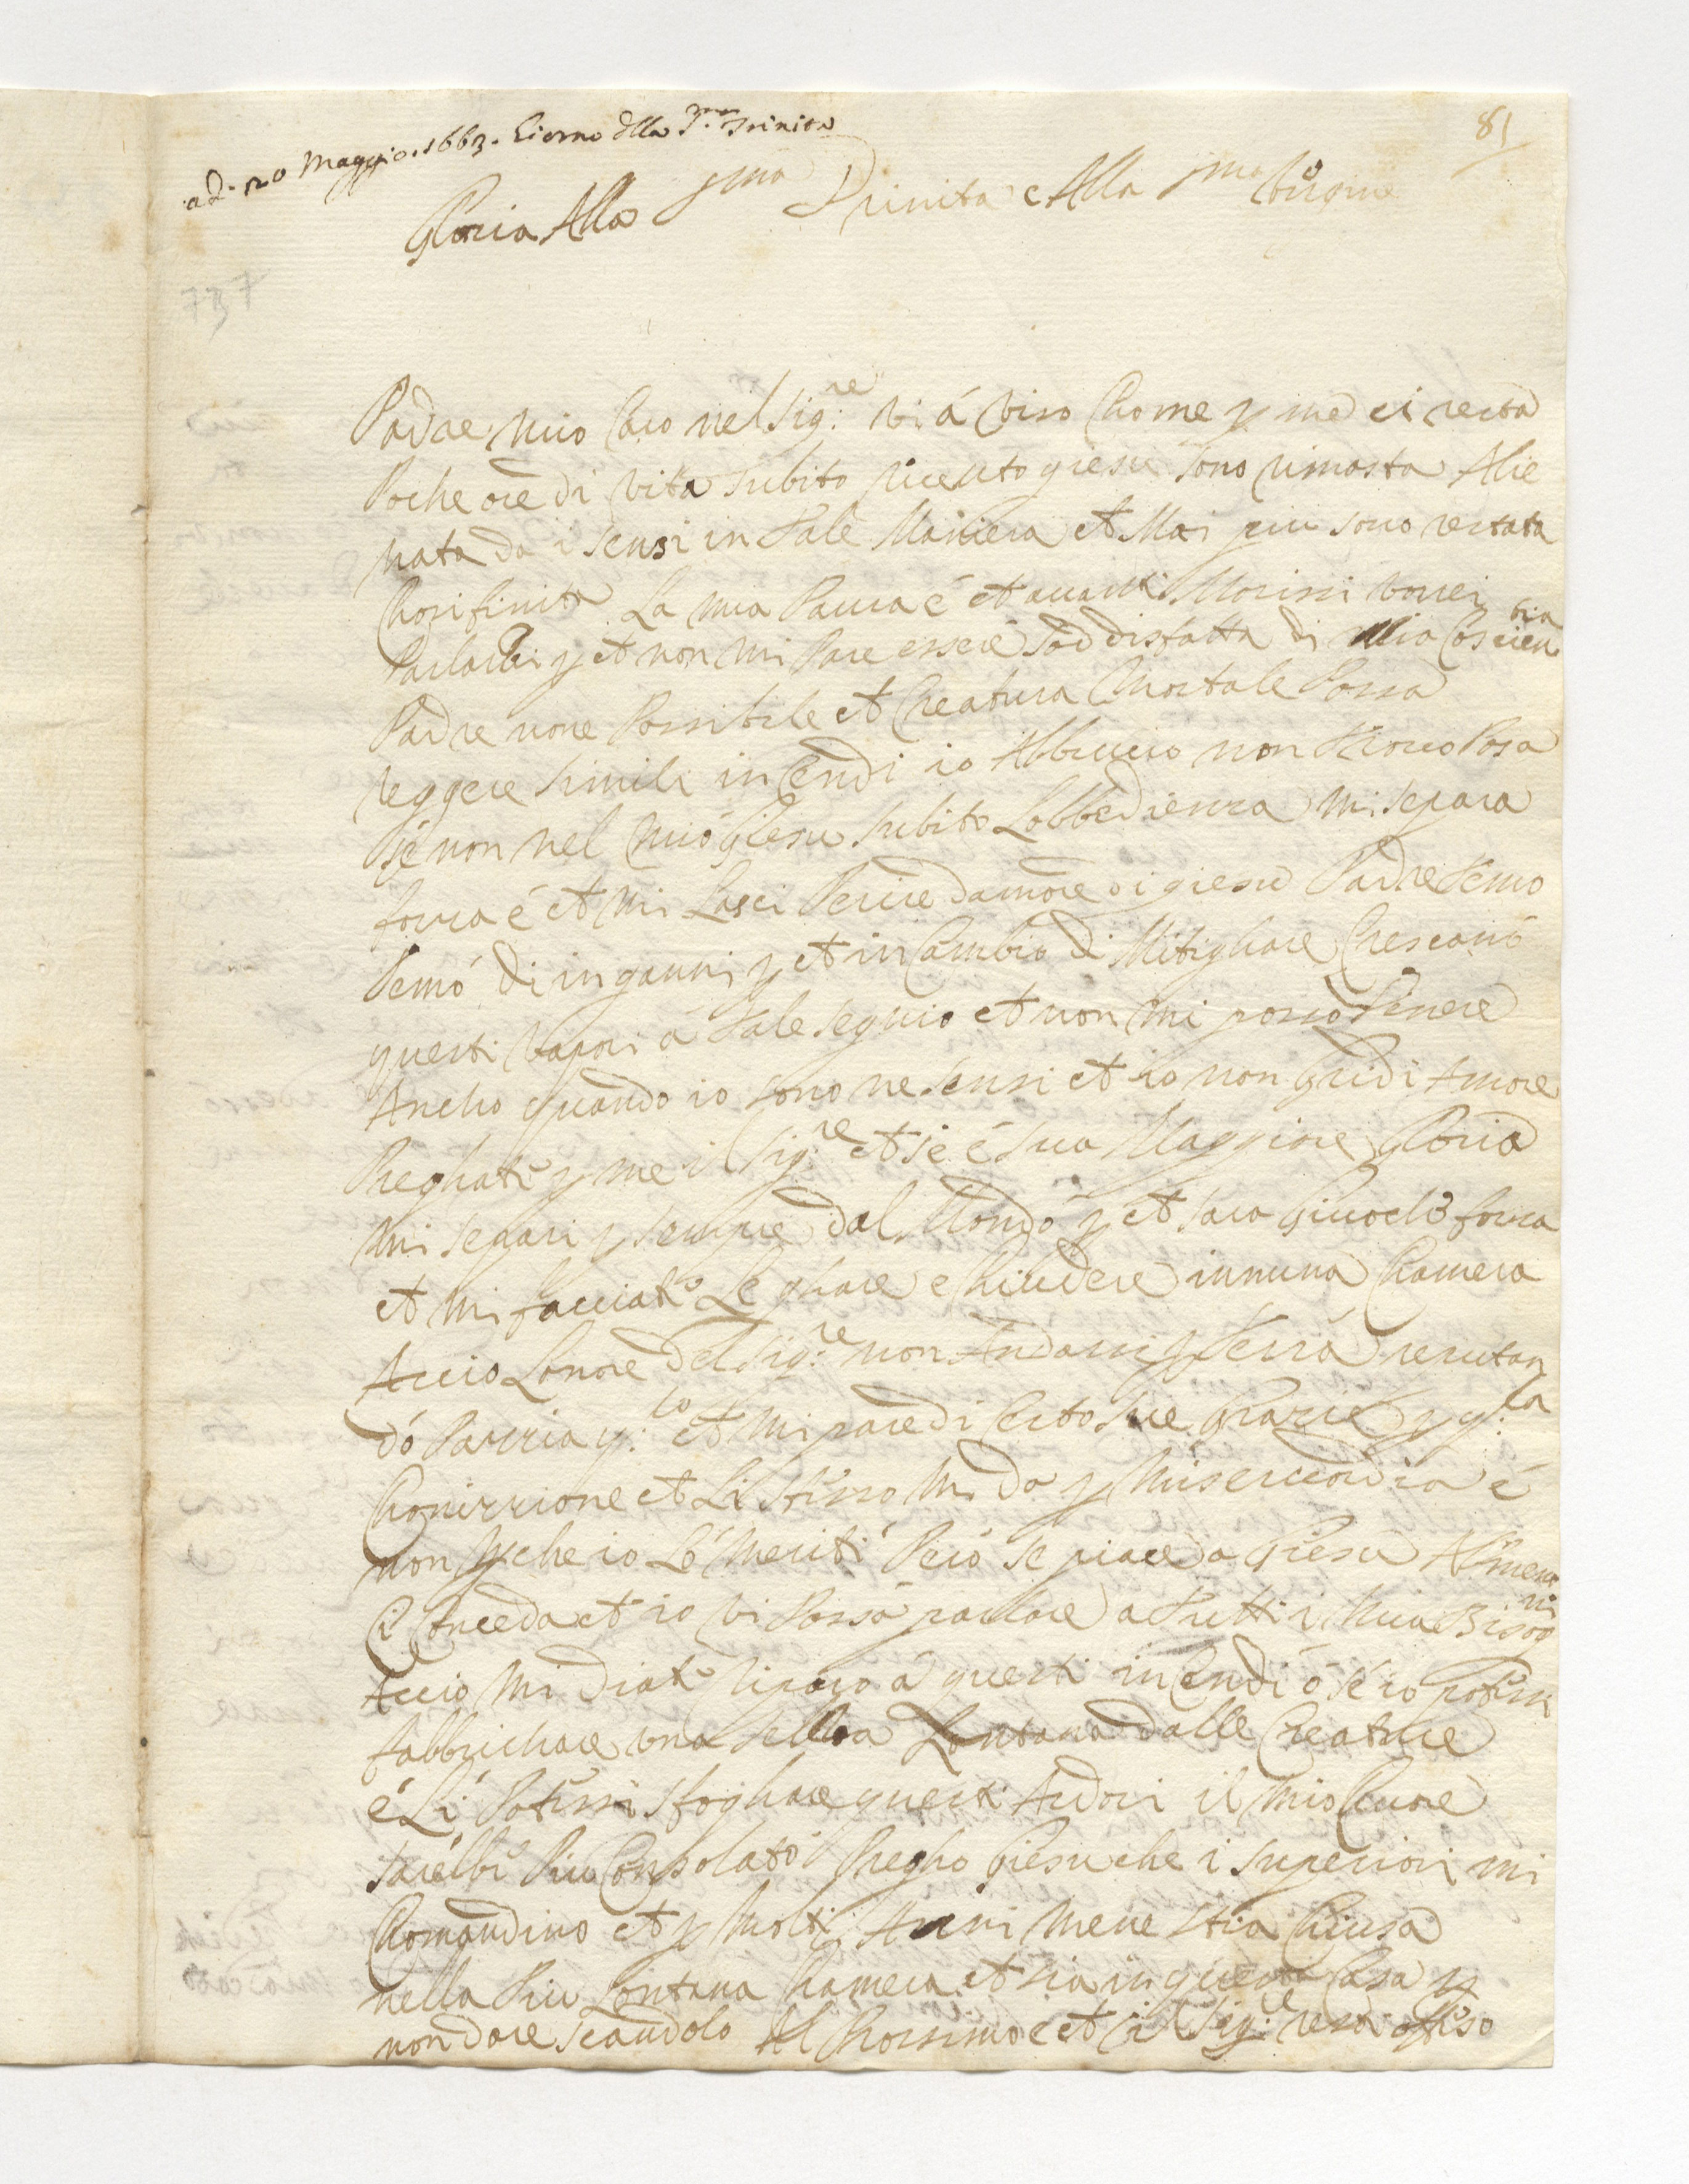 ad. 20 Maggio. 1663. Giorno dlla S.ma Trinita
81
Gloria Alla SSma Trinita e Alla SSma Virgine
737
Padre mio Caro nel Sig:re vi á viso Chome p me ci resta
Poche ore di vita subito riceuto giesu sono rimasta Alie
nata da i sensi in tale Maniera et Mai piu sono restata
Chosi finita La mia Paura é et auanti Morissi vorrei
Parlarvi p et non mi Pare essere sod disfatta di Mia Coscien
tia
Padre none Possibile et Creatura Mortale Possa
reggere simili in Cendi io Abbrucio non truouo Posa
sé non nel mio giesu subito Lobbedienza mi separa
forza é et mi Lasci Perire damore o i giesu Padre temo
temó di inganni p et in Cambio di Mitighare Crescano
questi vapori á tale seguio et non mi posso tenere
Ancho quando io sono ne sensi et io non gridi Amore
Preghate p me il Sig:re et sé é sua Maggiore gloria
mi separi p sempre dal Mondo p et sara giuocho forza
et mi facciate Le ghare e chiudere innuna Chamera
Accio Lonore del Sig:re non Andassi p terrá reputan
dó Pazzia q:to et mi pare di Certo sue grazie p q:ta
Chonizzione et Li stesso Mi da p Misericordia é
non p che io Ló meriti Peró se piace a giesu Almeno
Ci Conceda et io vi Possa parlare a tutti i Mia Bisog
ni
Accio Mi diate riparo á questi in Cendi ó sé io potessi
fabbrichare una sella Lontana dalle Creature
é Lí Potessi sfoghare questi Ardori il mio Cuore
sarebbe Piu Consolato Pregho giesu che i superiori mi
Chomandino et p Molti Anni Mene stia Chiusa
nella Piu Lontana Chamera et sia in questa Casa p
non dare scandolo Al Prossimo e et il Sig:re resti offeso